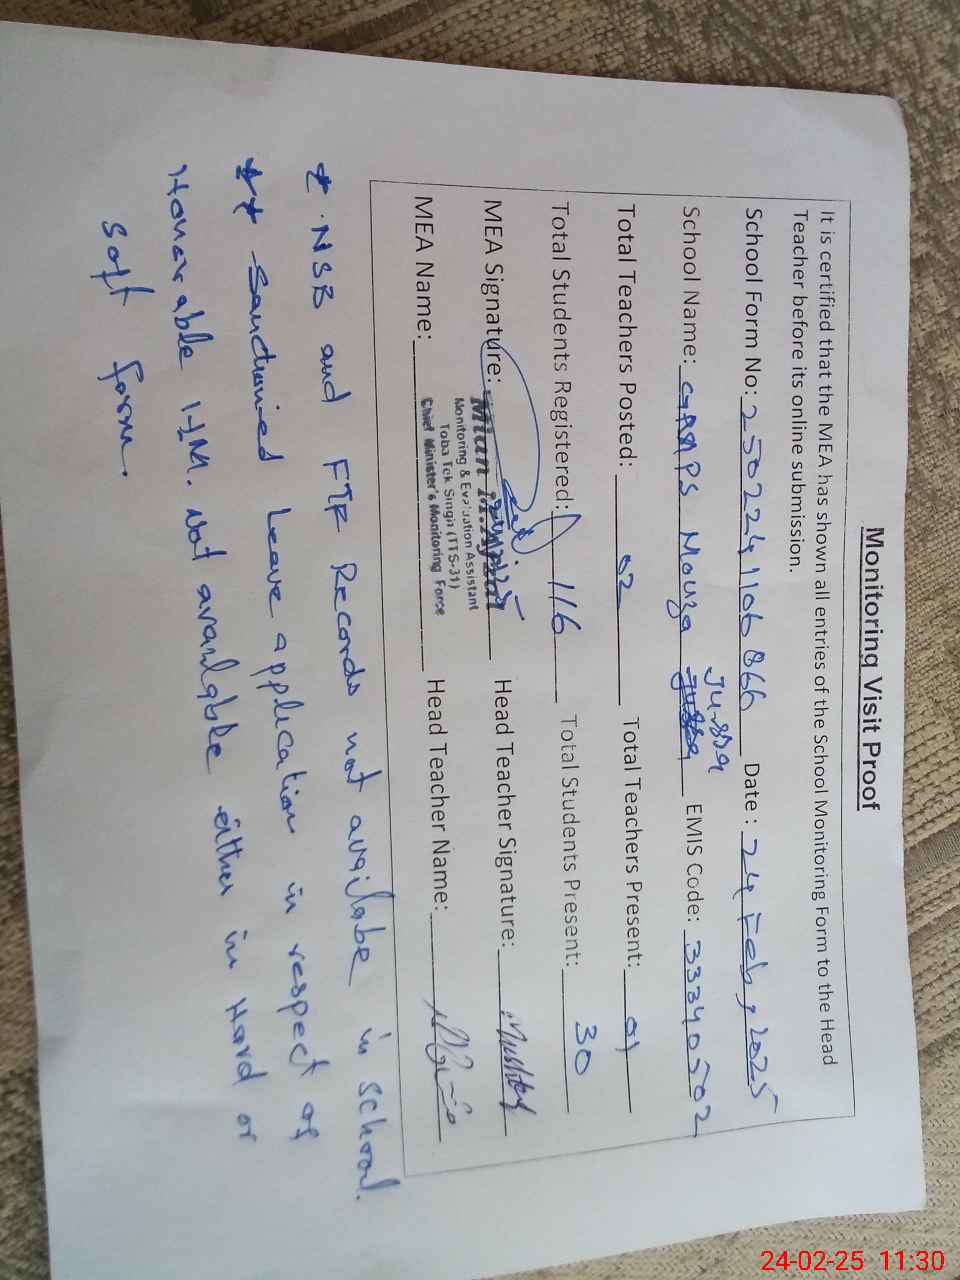 Monitoring Visit Proof
It is certified that the MEA has shown all entries of the School Monitoring Form to the Head
Teacher before its online submission.
School Form No: 2502241106866 Date : 24 Feb, 2025
Jussa
School Name: GMPS Mouza EMIS Code: 33340502
Total Teachers Posted: 02 Total Teachers Present: 01
Total Students Registered: 116 Total Students Present: 30
MEA Signature: Head Teacher Signature: Mushtaq
Mian
Monitoring & Evaluation Assistant
Toba Tek Singh (TTS-31)
Chief Minister's Monitoring Force
MEA Name: Head Teacher Name:
* NSB and FTF Records not availabe in school.
** Sanctioned Leave application in respect of
Honourable HM. not available either in Hard or
soft form.
24-02-25 11:30